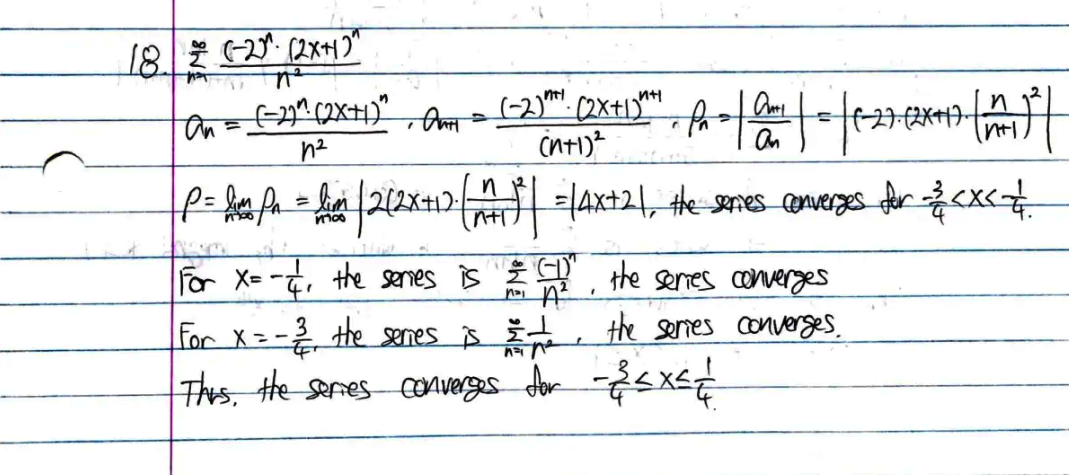 18. ∑_{n=1}^{∞} (-2)^n · (2x+1)^n / n^2
a_n = (-2)^n · (2x+1)^n / n^2 , a_{n+1} = (-2)^{n+1} · (2x+1)^{n+1} / (n+1)^2 . ρ_n = |a_{n+1} / a_n| = |(-2)·(2x+1)·(n/(n+1))^2|
ρ = lim_{n→∞} ρ_n = lim_{n→∞} |2(2x+1)·(n/(n+1))^2| = |4x+2|, the series converges for -3/4 < x < -1/4.
For x = -1/4, the series is ∑_{n=1}^{∞} (-1)^n / n^2 , the series converges
For x = -3/4, the series is ∑_{n=1}^{∞} 1/n^2 , the series converges.
Thus, the series converges for -3/4 ≤ x ≤ -1/4